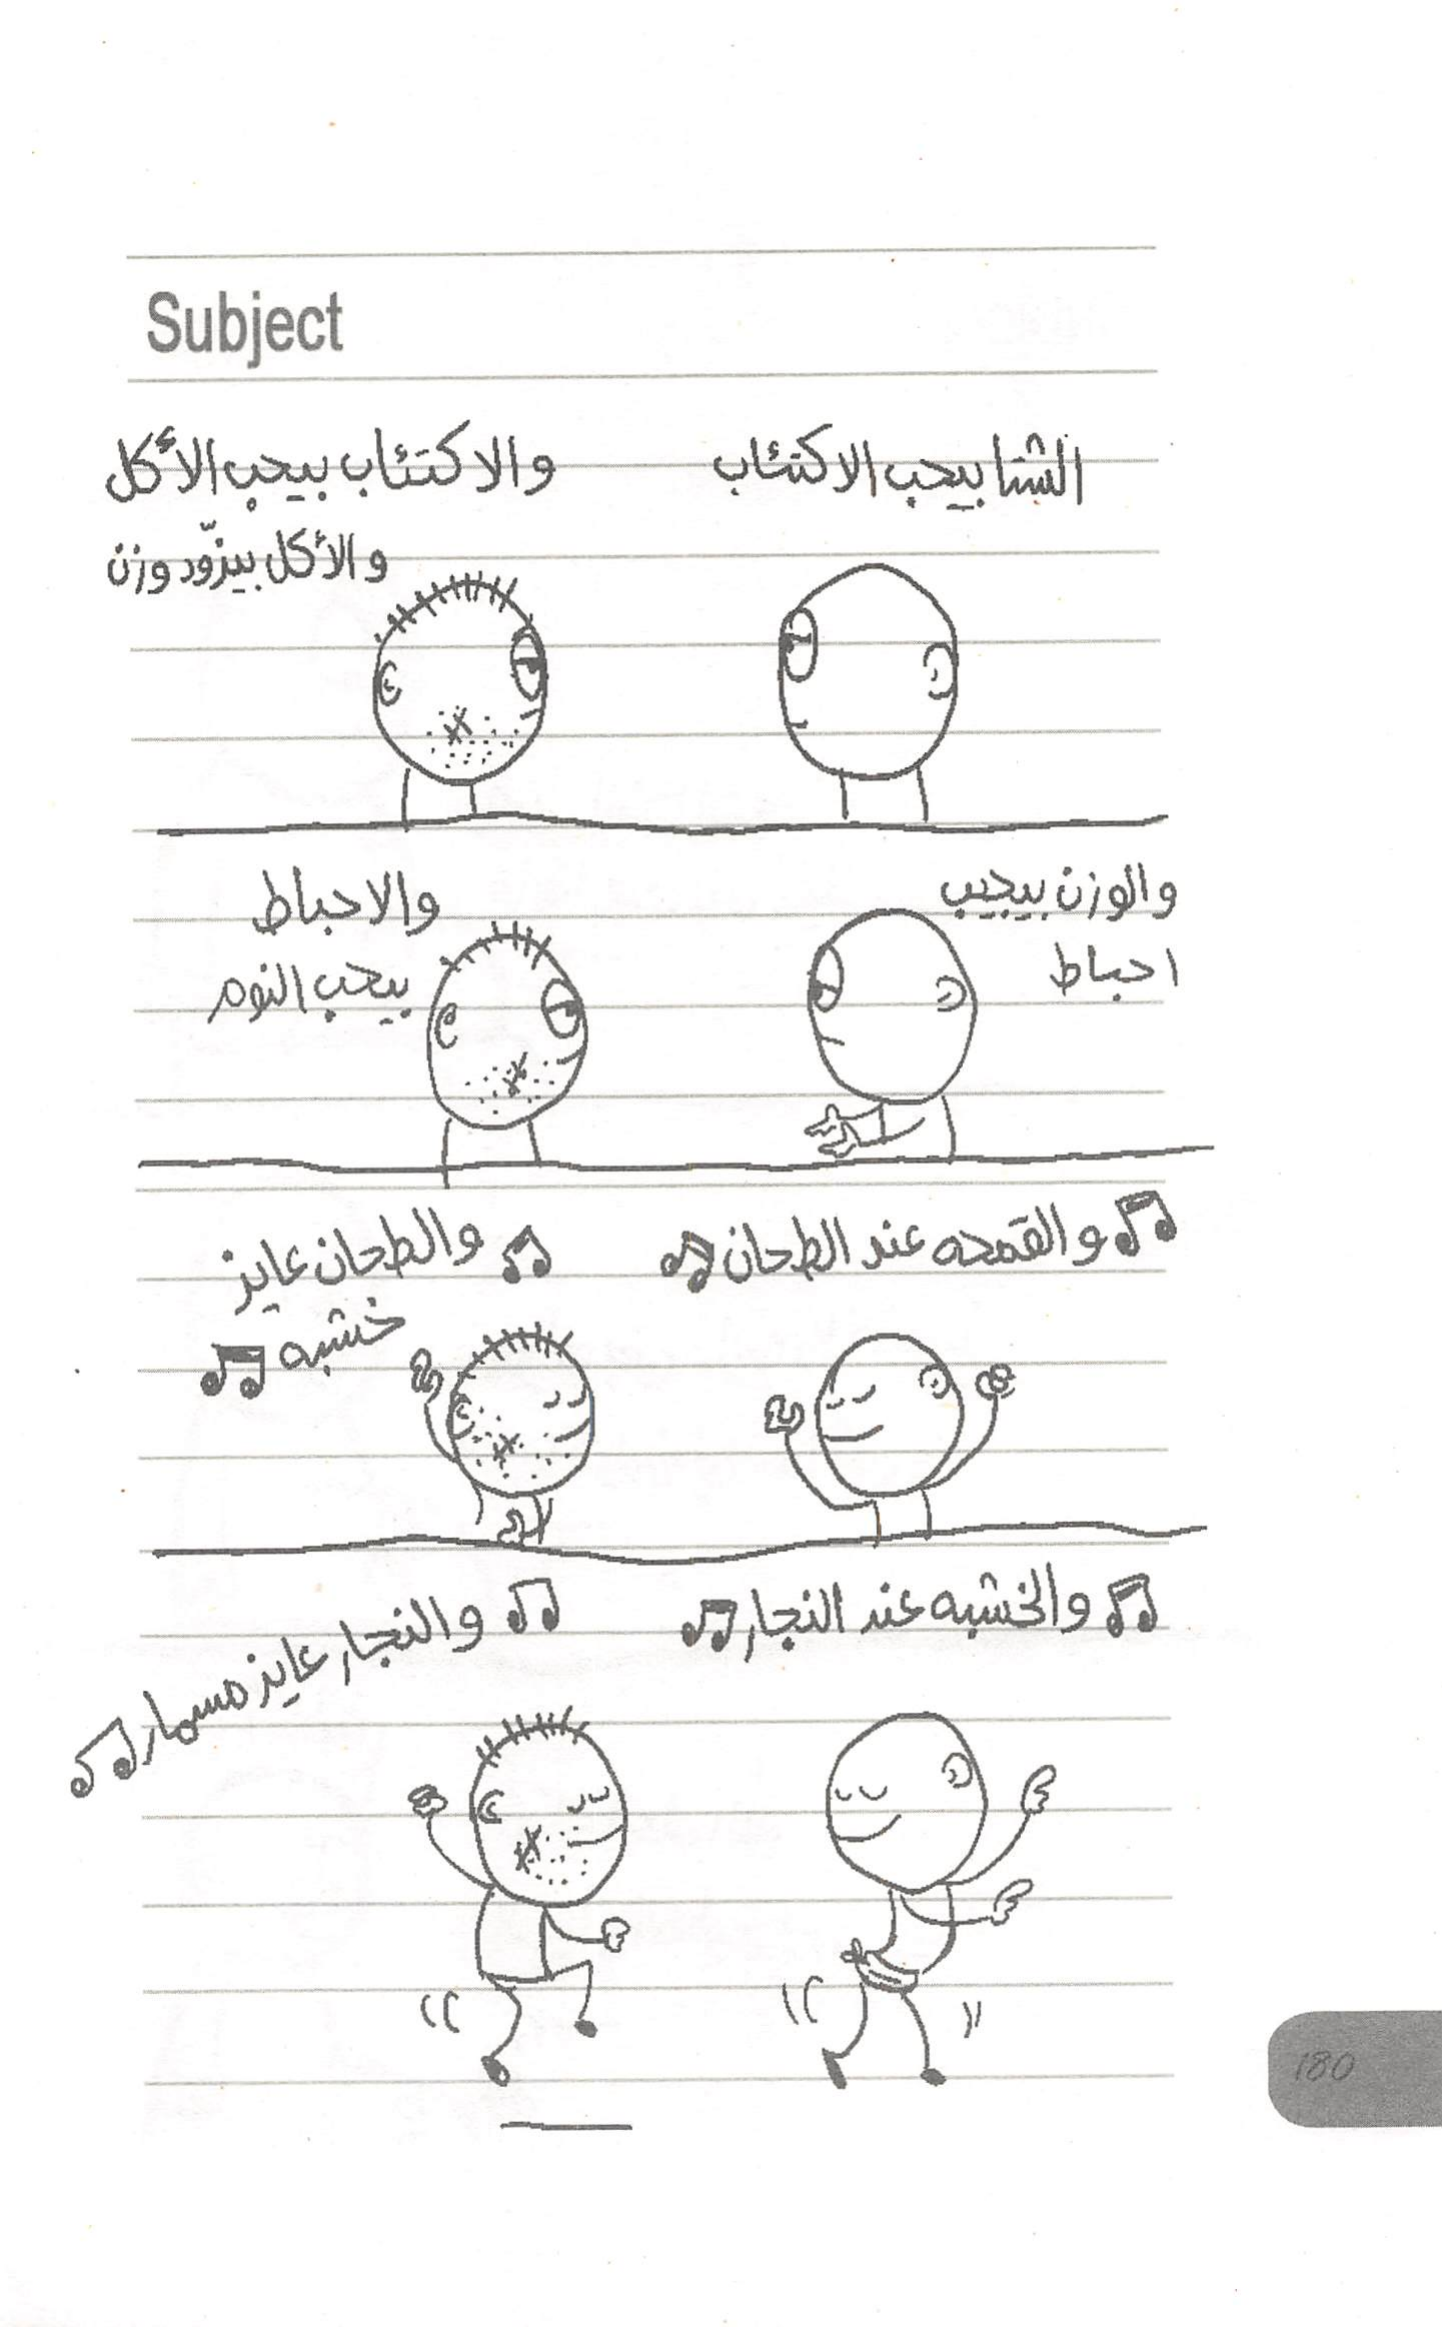 Subject
الشتا بيحب الاكتئاب
والاكتئاب بيحب الأكل
والأكل بيزوّد وزن
والوزن بيجيب
احباط
والاحباط
بيحب النوم
والقمحه عند الطحان
والطحان عايز
خشبه
والخشبه عند النجار
والنجار عايز مسمار
180